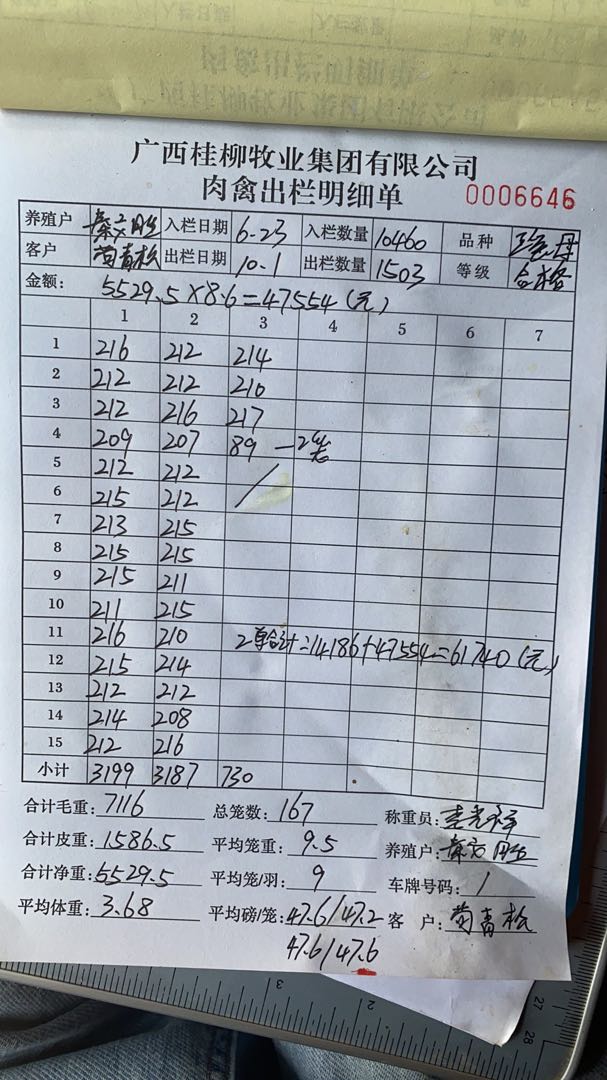 广西桂柳牧业集团有限公司
肉禽出栏明细单 0006646
养殖户 入栏日期 6-23 入栏数量 10460 品种
客户 苟青松 出栏日期 10.1 出栏数量 1503 等级 合格
金额: 5529.5×8.6=47554(元)
1 2 3 4 5 6 7
1 216 212 214
2 212 212 210
3 212 216 217
4 209 207 89 -2笼
5 212 212
6 215 212
7 213 215
8 215 215
9 215 211
10 211 215
11 216 210 2单合计=14186+47554=61740(元)
12 215 214
13 212 212
14 214 208
15 212 216
小计 3199 3187 730
合计毛重: 7116 总笼数: 167 称重员:
合计皮重: 1586.5 平均笼重: 9.5 养殖户:
合计净重: 5529.5 平均笼/羽: 9 车牌号码: /
平均体重: 3.68 平均磅/笼: 47.6/47.2 客 户: 苟青松
47.6/47.6